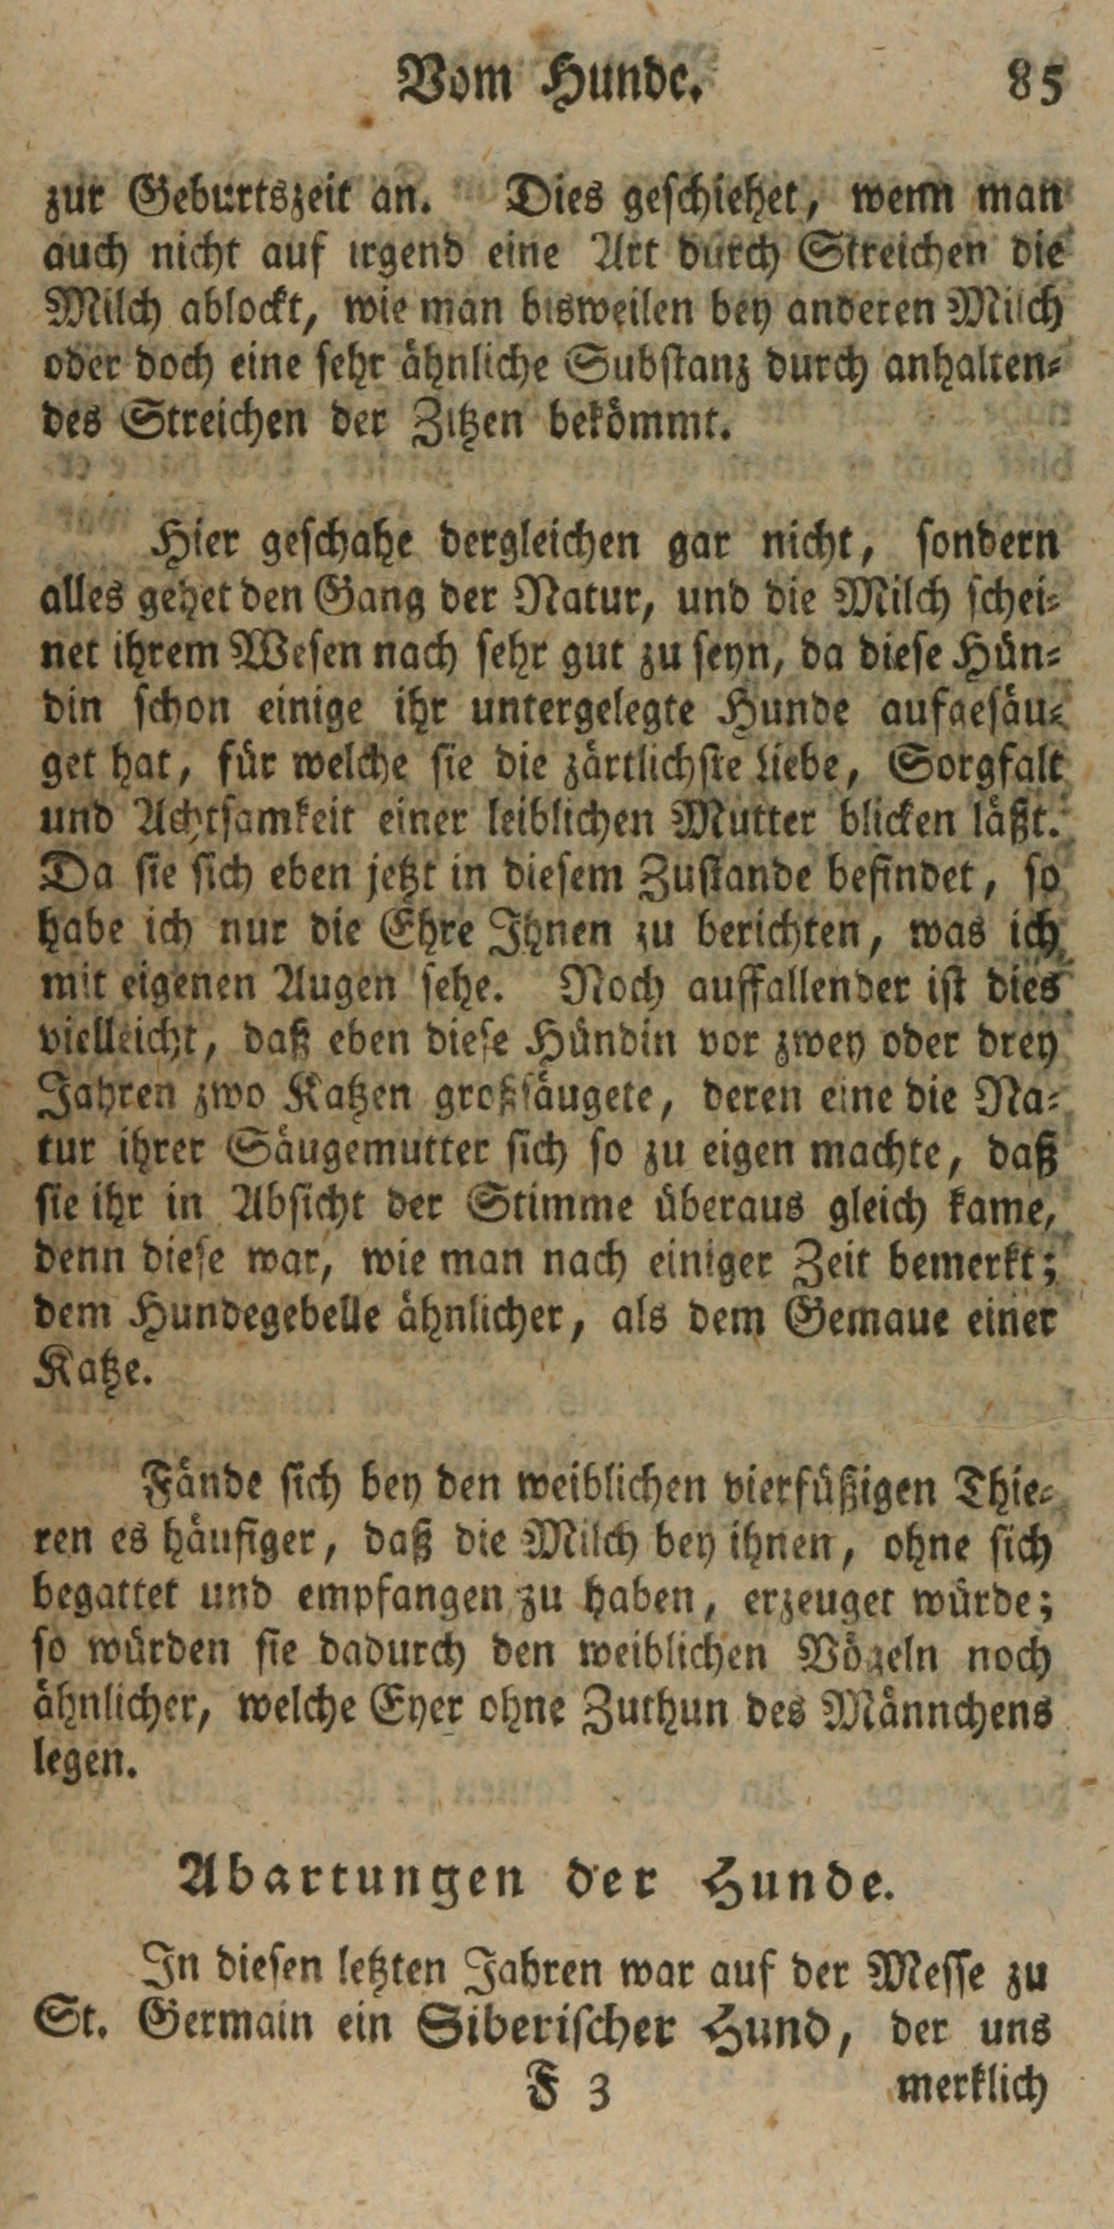 Vom Hunde. 85
zur Geburtszeit an. Dies geschiehet, wenn man
auch nicht auf irgend eine Art durch Streichen die
Milch ablockt, wie man bisweilen bey anderen Milch
oder doch eine sehr ähnliche Substanz durch anhalten⸗
des Streichen der Zitzen bekömmt.
Hier geschahe dergleichen gar nicht, sondern
alles gehet den Gang der Natur, und die Milch schei⸗
net ihrem Wesen nach sehr gut zu seyn, da diese Hün⸗
din schon einige ihr untergelegte Hunde aufgesäu⸗
get hat, für welche sie die zärtlichste Liebe, Sorgfalt
und Achtsamkeit einer leiblichen Mutter blicken läßt.
Da sie sich eben jetzt in diesem Zustande befindet, so
habe ich nur die Ehre Ihnen zu berichten, was ich
mit eigenen Augen sehe. Noch auffallender ist dies
vielleicht, daß eben diese Hündin vor zwey oder drey
Jahren zwo Katzen großsäugete, deren eine die Na⸗
tur ihrer Säugemutter sich so zu eigen machte, daß
sie ihr in Absicht der Stimme überaus gleich kame,
denn diese war, wie man nach einiger Zeit bemerkt;
dem Hundegebelle ähnlicher, als dem Gemaue einer
Katze.
Fände sich bey den weiblichen vierfüßigen Thie⸗
ren es häufiger, daß die Milch bey ihnen, ohne sich
begattet und empfangen zu haben, erzeuget würde;
so würden sie dadurch den weiblichen Vögeln noch
ähnlicher, welche Eyer ohne Zuthun des Männchens
legen.
Abartungen der Hunde.
In diesen letzten Jahren war auf der Messe zu
St. Germain ein Siberischer Hund, der uns
F 3 merklich